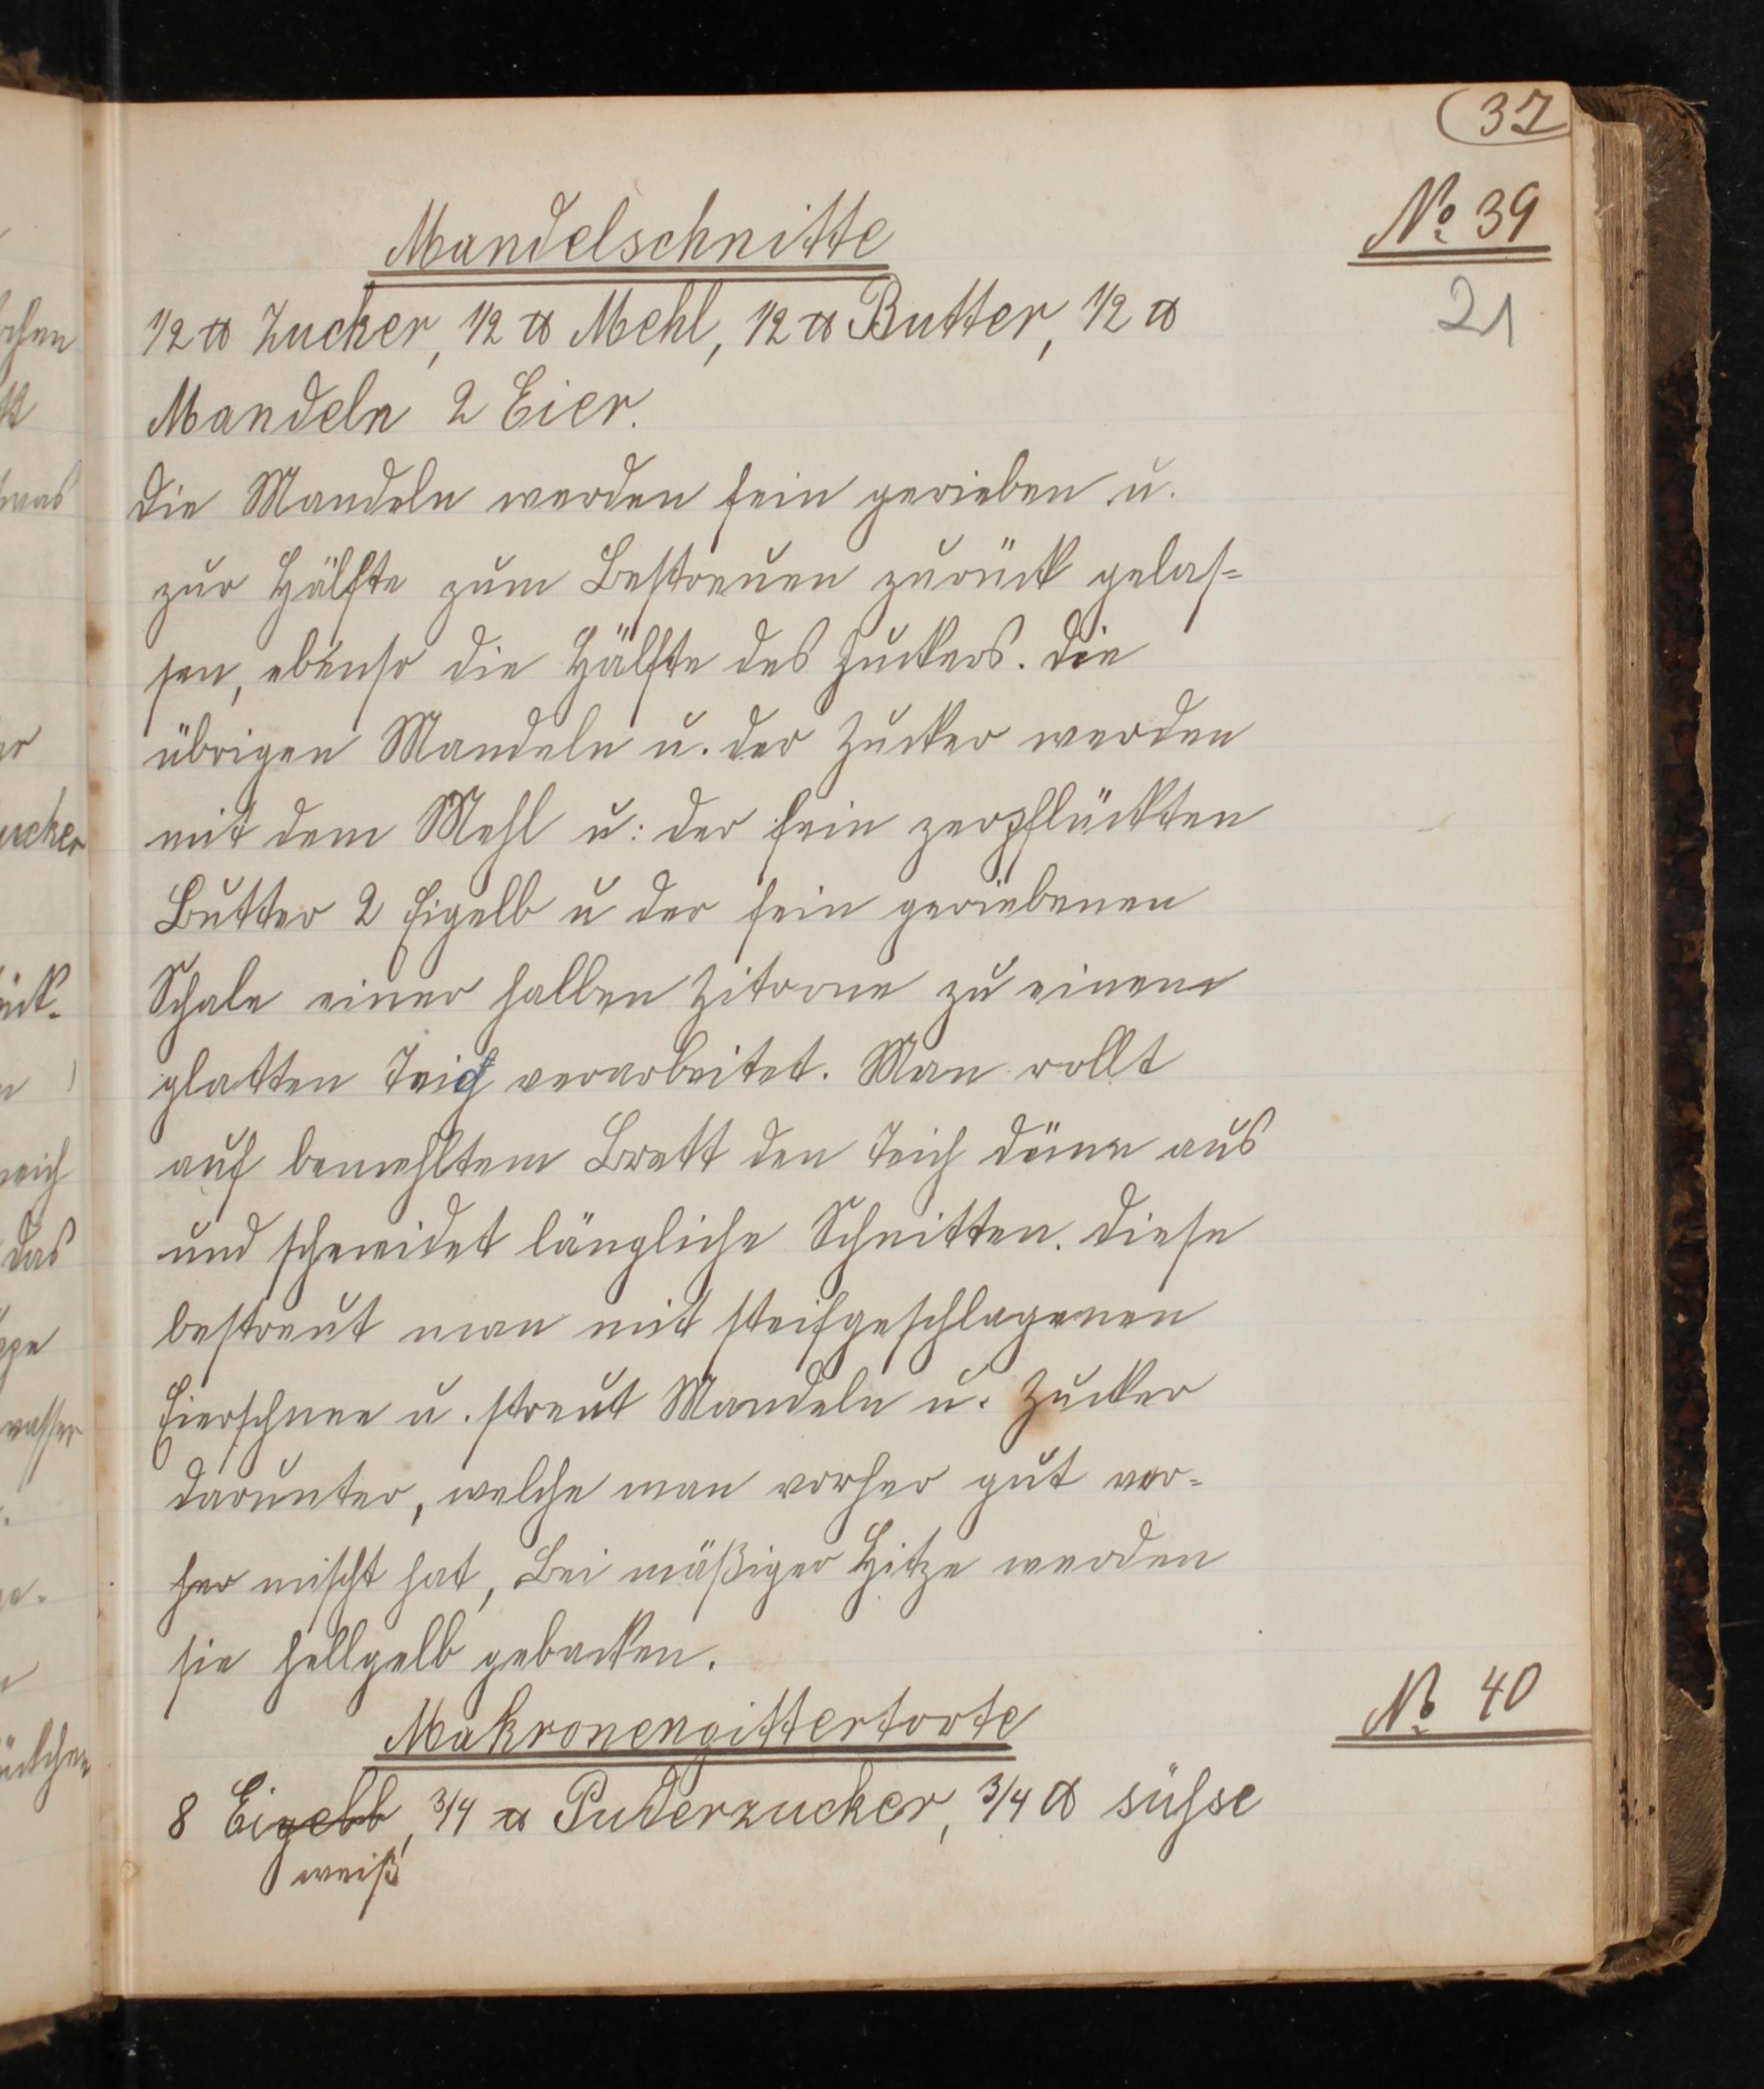 37
No 39
Mandelschnitte
21
1/2 ℔ Zucker, 1/2 ℔ Mehl, 1/2 ℔ Butter, 1/2 ℔
Mandeln 2 Eier.
Die Mandeln werden fein gerieben u.
zur Hälfte zum Bestreuen zurück gelas-
sen, ebenso die Hälfte des Zuckers. Die
übrigen Mandeln u. der Zucker werden
mit dem Mehl u. der fein zerpflückten
Butter 2 Eigelb u der fein geriebenen
Schale einer halben Zitrone zu einem
glatten Teig verarbeitet. Man rollt
auf bemehltem Brett den Teich dünn aus
und schneidet längliche Schnitten. Diese
bestreut man mit steifgeschlagenen
Eierschnee u. streut Mandeln u. Zucker
darunter, welche man vorher gut vor-
her mischt hat, Bei mäßiger Hitze werden
sie hellgelb gebacken.
No 40
Makronengittertorte
8 Eigelb, 3/4 ℔ Puderzucker, 3/4 ℔ süsse
weiß
ucker
das
wasser